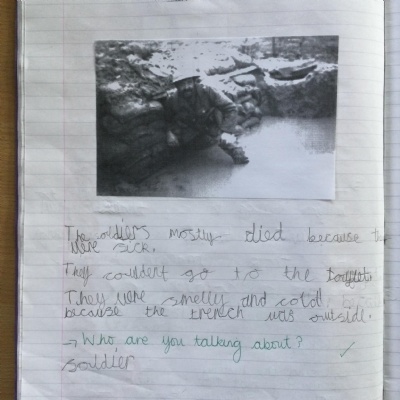 The oldiers mostly died because the
were sick.
They couldent go to the toaylet
They were smelly and cold
because the trench was outside.
→ Who are you talking about? ✓
Souldier